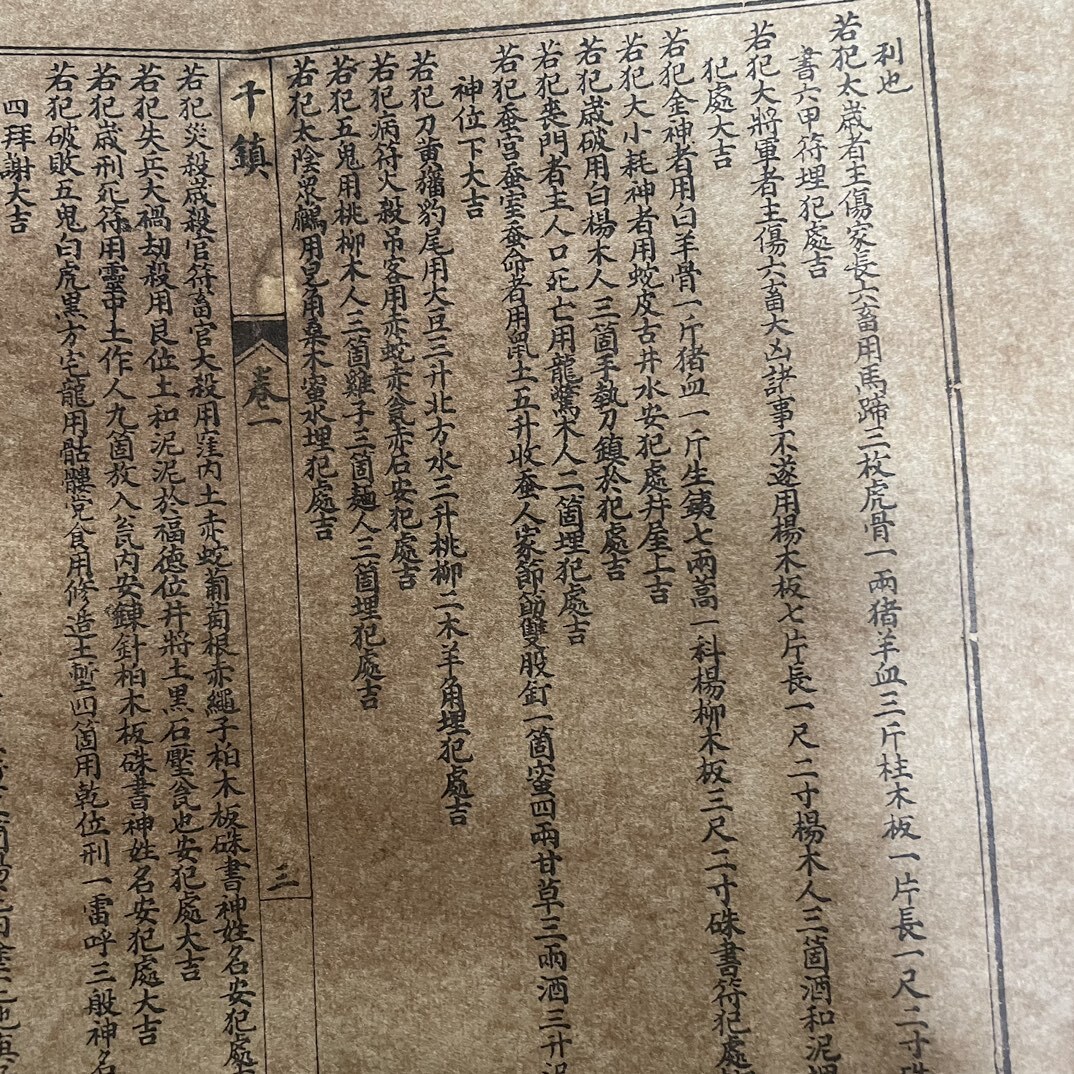 利也
若犯太歲者主傷家長六畜用馬蹄三枚虎骨一兩猪羊血三斤桂木板一片長一尺二寸硃
書六甲符埋犯處吉
若犯大將軍者主傷六畜大凶諸事不遂用楊木板七片長一尺二寸楊木人三箇酒和泥埋
犯處大吉
若犯金神者用白羊骨一斤猪血一斤生鉄七兩蒿一科楊柳木板三尺二寸硃書符犯處
若犯大小耗神者用蛇皮古井水安犯處井屋上吉
若犯歲破用白楊木人三箇手執刀鎮於犯處吉
若犯喪門者主人口死亡用龍鷲木人二箇埋犯處吉
若犯蚕宮蚕室蚕命者用鼠土五升收蚕人家節節雙股釘一箇蜜四兩甘草三兩酒三升泥
神位下大吉
若犯刀黄旛豹尾用大豆三升北方水三升桃柳二木羊角埋犯處吉
若犯病符火殺吊客用赤蛇赤瓮赤石安犯處吉
若犯五鬼用桃柳木人三箇雞子三箇麺人三箇埋犯處吉
若犯太陰用皂角桑木蜜水埋犯處吉
千鎮
卷一
三
若犯災殺歲殺官符畜官大殺用窪内土赤蛇葡萄根赤繩子柏木板硃書神姓名安犯處吉
若犯失兵大禍劫殺用艮位土和泥泥於福德位井將土黑石壓瓮也安犯處大吉
若犯歲刑死符用靈中土作人九箇放入瓮内安鍊針柏木板硃書神姓名安犯處大吉
若犯破敗五鬼白虎黒方宅龍用骷髏党食用修造土塹四箇用乾位刑一雷呼三般神名
四拜謝大吉